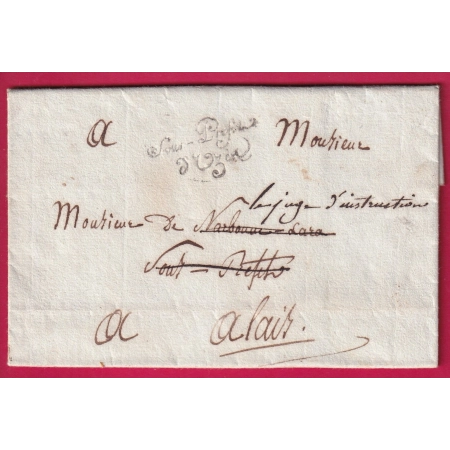 A Monsieur
Sous-Préfet
d'Uzès
le juge d'instruction
Monsieur de Narbonne-Lara
Sous-Préfet
A alais.